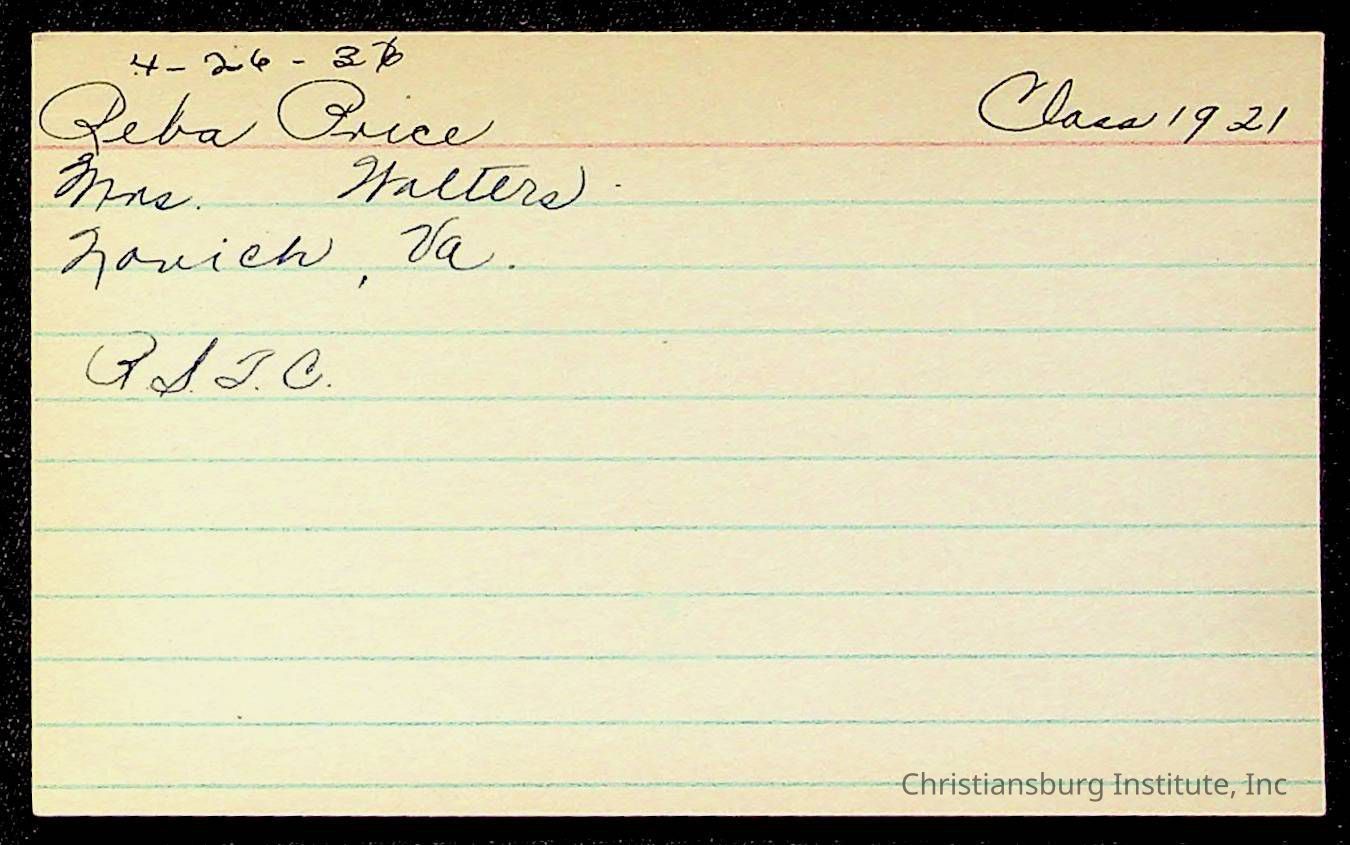 4-26-36
Reba Price
Class 1921
Mrs. Walters
Novich, Va.
R.S.T.C.
Christiansburg Institute, Inc